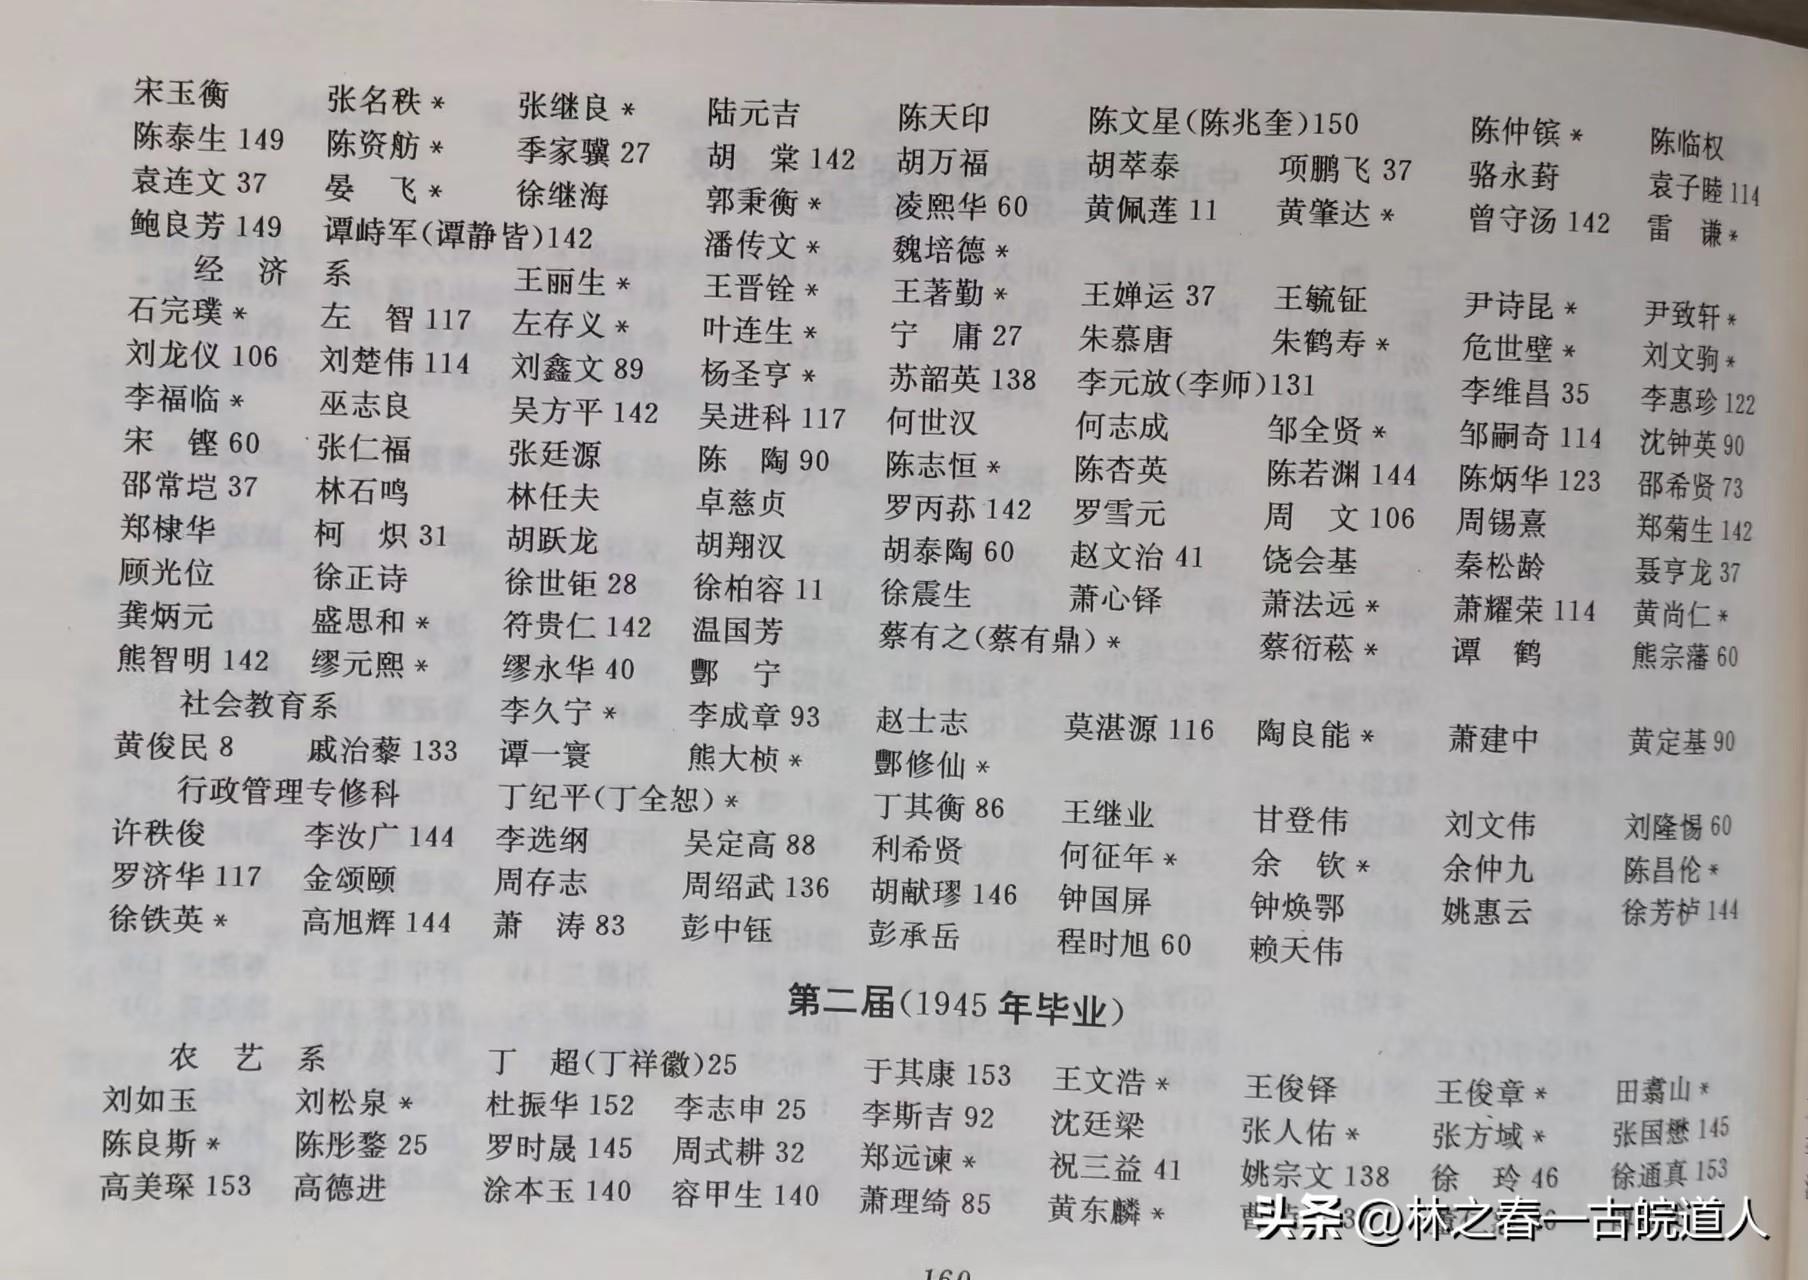 宋玉衡 张名秩* 张继良* 陆元吉 陈天印 陈文星(陈兆奎)150 陈仲镔* 陈临权
陈泰生149 陈资舫* 季家骥27 胡 棠142 胡万福 胡萃泰 项鹏飞37 骆永葑 袁子睦114
袁连文37 晏 飞* 徐继海 郭秉衡* 凌熙华60 黄佩莲11 黄肇达* 曾守汤142 雷 谦*
鲍良芳149 谭峙军(谭静皆)142 潘传文* 魏培德*
经 济 系 王丽生* 王晋铨* 王著勤* 王婵运37 王毓钲 尹诗昆* 尹致轩*
石完璞* 左 智117 左存义* 叶连生* 宁 庸27 朱慕唐 朱鹤寿* 危世壁* 刘文驹*
刘龙仪106 刘楚伟114 刘鑫文89 杨圣亨* 苏韶英138 李元放(李师)131 李维昌35 李惠珍122
李福临* 巫志良 吴方平142 吴进科117 何世汉 何志成 邹全贤* 邹嗣奇114 沈钟英90
宋 铿60 张仁福 张廷源 陈 陶90 陈志恒* 陈杏英 陈若渊144 陈炳华123 邵希贤73
邵常垲37 林石鸣 林任夫 卓慈贞 罗丙荪142 罗雪元 周 文106 周锡熹 郑菊生142
郑棣华 柯 炽31 胡跃龙 胡翔汉 胡泰陶60 赵文治41 饶会基 秦松龄 聂亨龙37
顾光位 徐正诗 徐世钜28 徐柏容11 徐震生 萧心铎 萧法远* 萧耀荣114 黄尚仁*
龚炳元 盛思和* 符贵仁142 温国芳 蔡有之(蔡有鼎)* 蔡衍菘* 谭 鹤 熊宗藩60
熊智明142 缪元熙* 缪永华40 酆 宁
社会教育系 李久宁* 李成章93 赵士志 莫湛源116 陶良能* 萧建中 黄定基90
黄俊民8 戚治藜133 谭一寰 熊大桢* 酆修仙*
行政管理专修科 丁纪平(丁全恕)* 丁其衡86 王继业 甘登伟 刘文伟 刘隆惕60
许秩俊 李汝广144 李选纲 吴定高88 利希贤 何征年* 余 钦* 余仲九 陈昌伦*
罗济华117 金颂颐 周存志 周绍武136 胡献璆146 钟国屏 钟焕鄂 姚惠云 徐芳栌144
徐铁英* 高旭辉144 萧 涛83 彭中钰 彭承岳 程时旭60 赖天伟
第二届(1945年毕业)
农 艺 系 丁 超(丁祥徽)25 于其康153 王文浩* 王俊铎 王俊章* 田翥山*
刘如玉 刘松泉* 杜振华152 李志申25 李斯吉92 沈廷梁 张人佑* 张方域* 张国懋145
陈良斯* 陈彤鍪25 罗时晟145 周式耕32 郑远谏* 祝三益41 姚宗文138 徐 玲46 徐通真153
高美琛153 高德进 涂本玉140 容甲生140 萧理绮85 黄东麟*
头条 @林之春一古皖道人
160